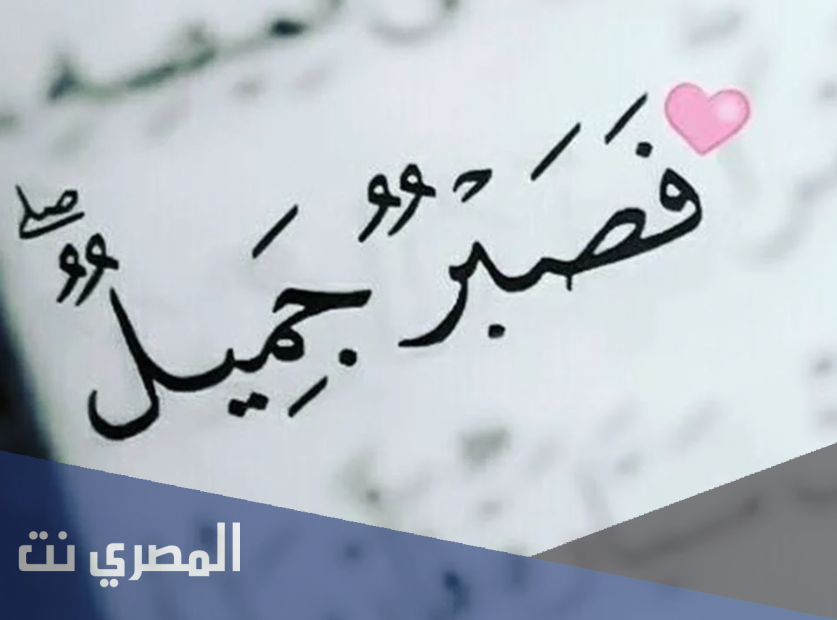 فَصَبْرٌ جَمِيلٌ ۖ
المصري نت